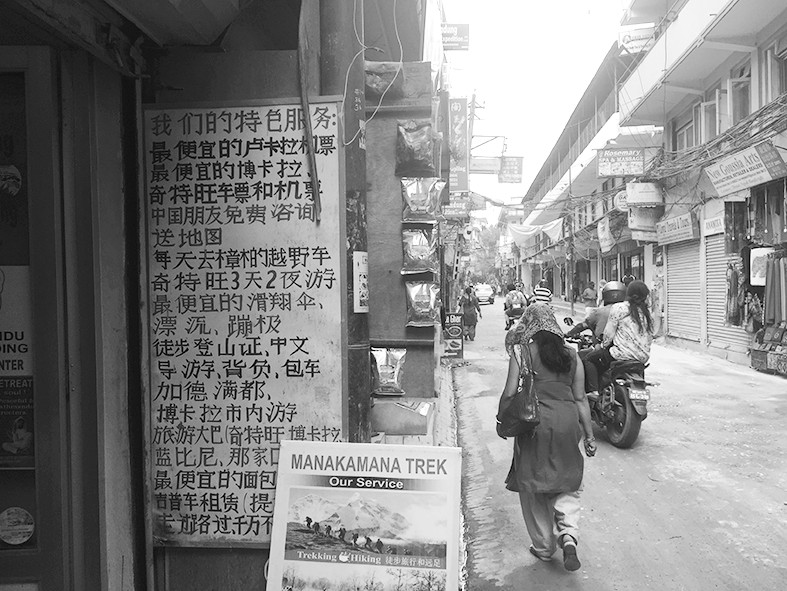 我们的特色服务:
最便宜的卢卡拉机票
最便宜的博卡拉
奇特旺车票和机票
中国朋友免费咨询
送地图
每天去樟木的越野车
奇特旺3天2夜游
最便宜的滑翔伞、
漂流、蹦极
徒步登山证、中文
导游、背负、包车
加德满都、
博卡拉市内游
旅游大巴(奇特旺博卡拉
蓝比尼、那家
最便宜的面包
普车租赁(提
路过千万不
MANAKAMANA TREK
Our Service
Trekking Hiking 徒步旅行和远足
NDU
DING
NTER
RETREAT
Rosemary
SPA & MASSAGE
New Ganesha Arts